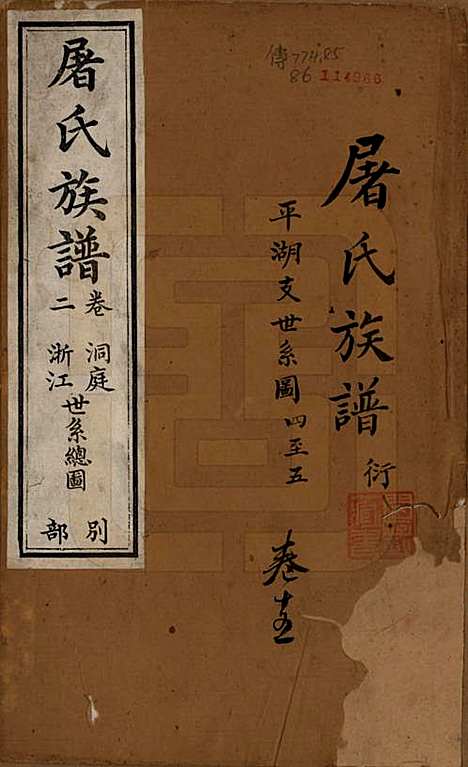 傳 774.85
86 114966
屠氏族譜 衍
平湖支世系圖四至五
卷十五
屠氏族譜 卷二
洞庭
浙江
世系總圖
別部